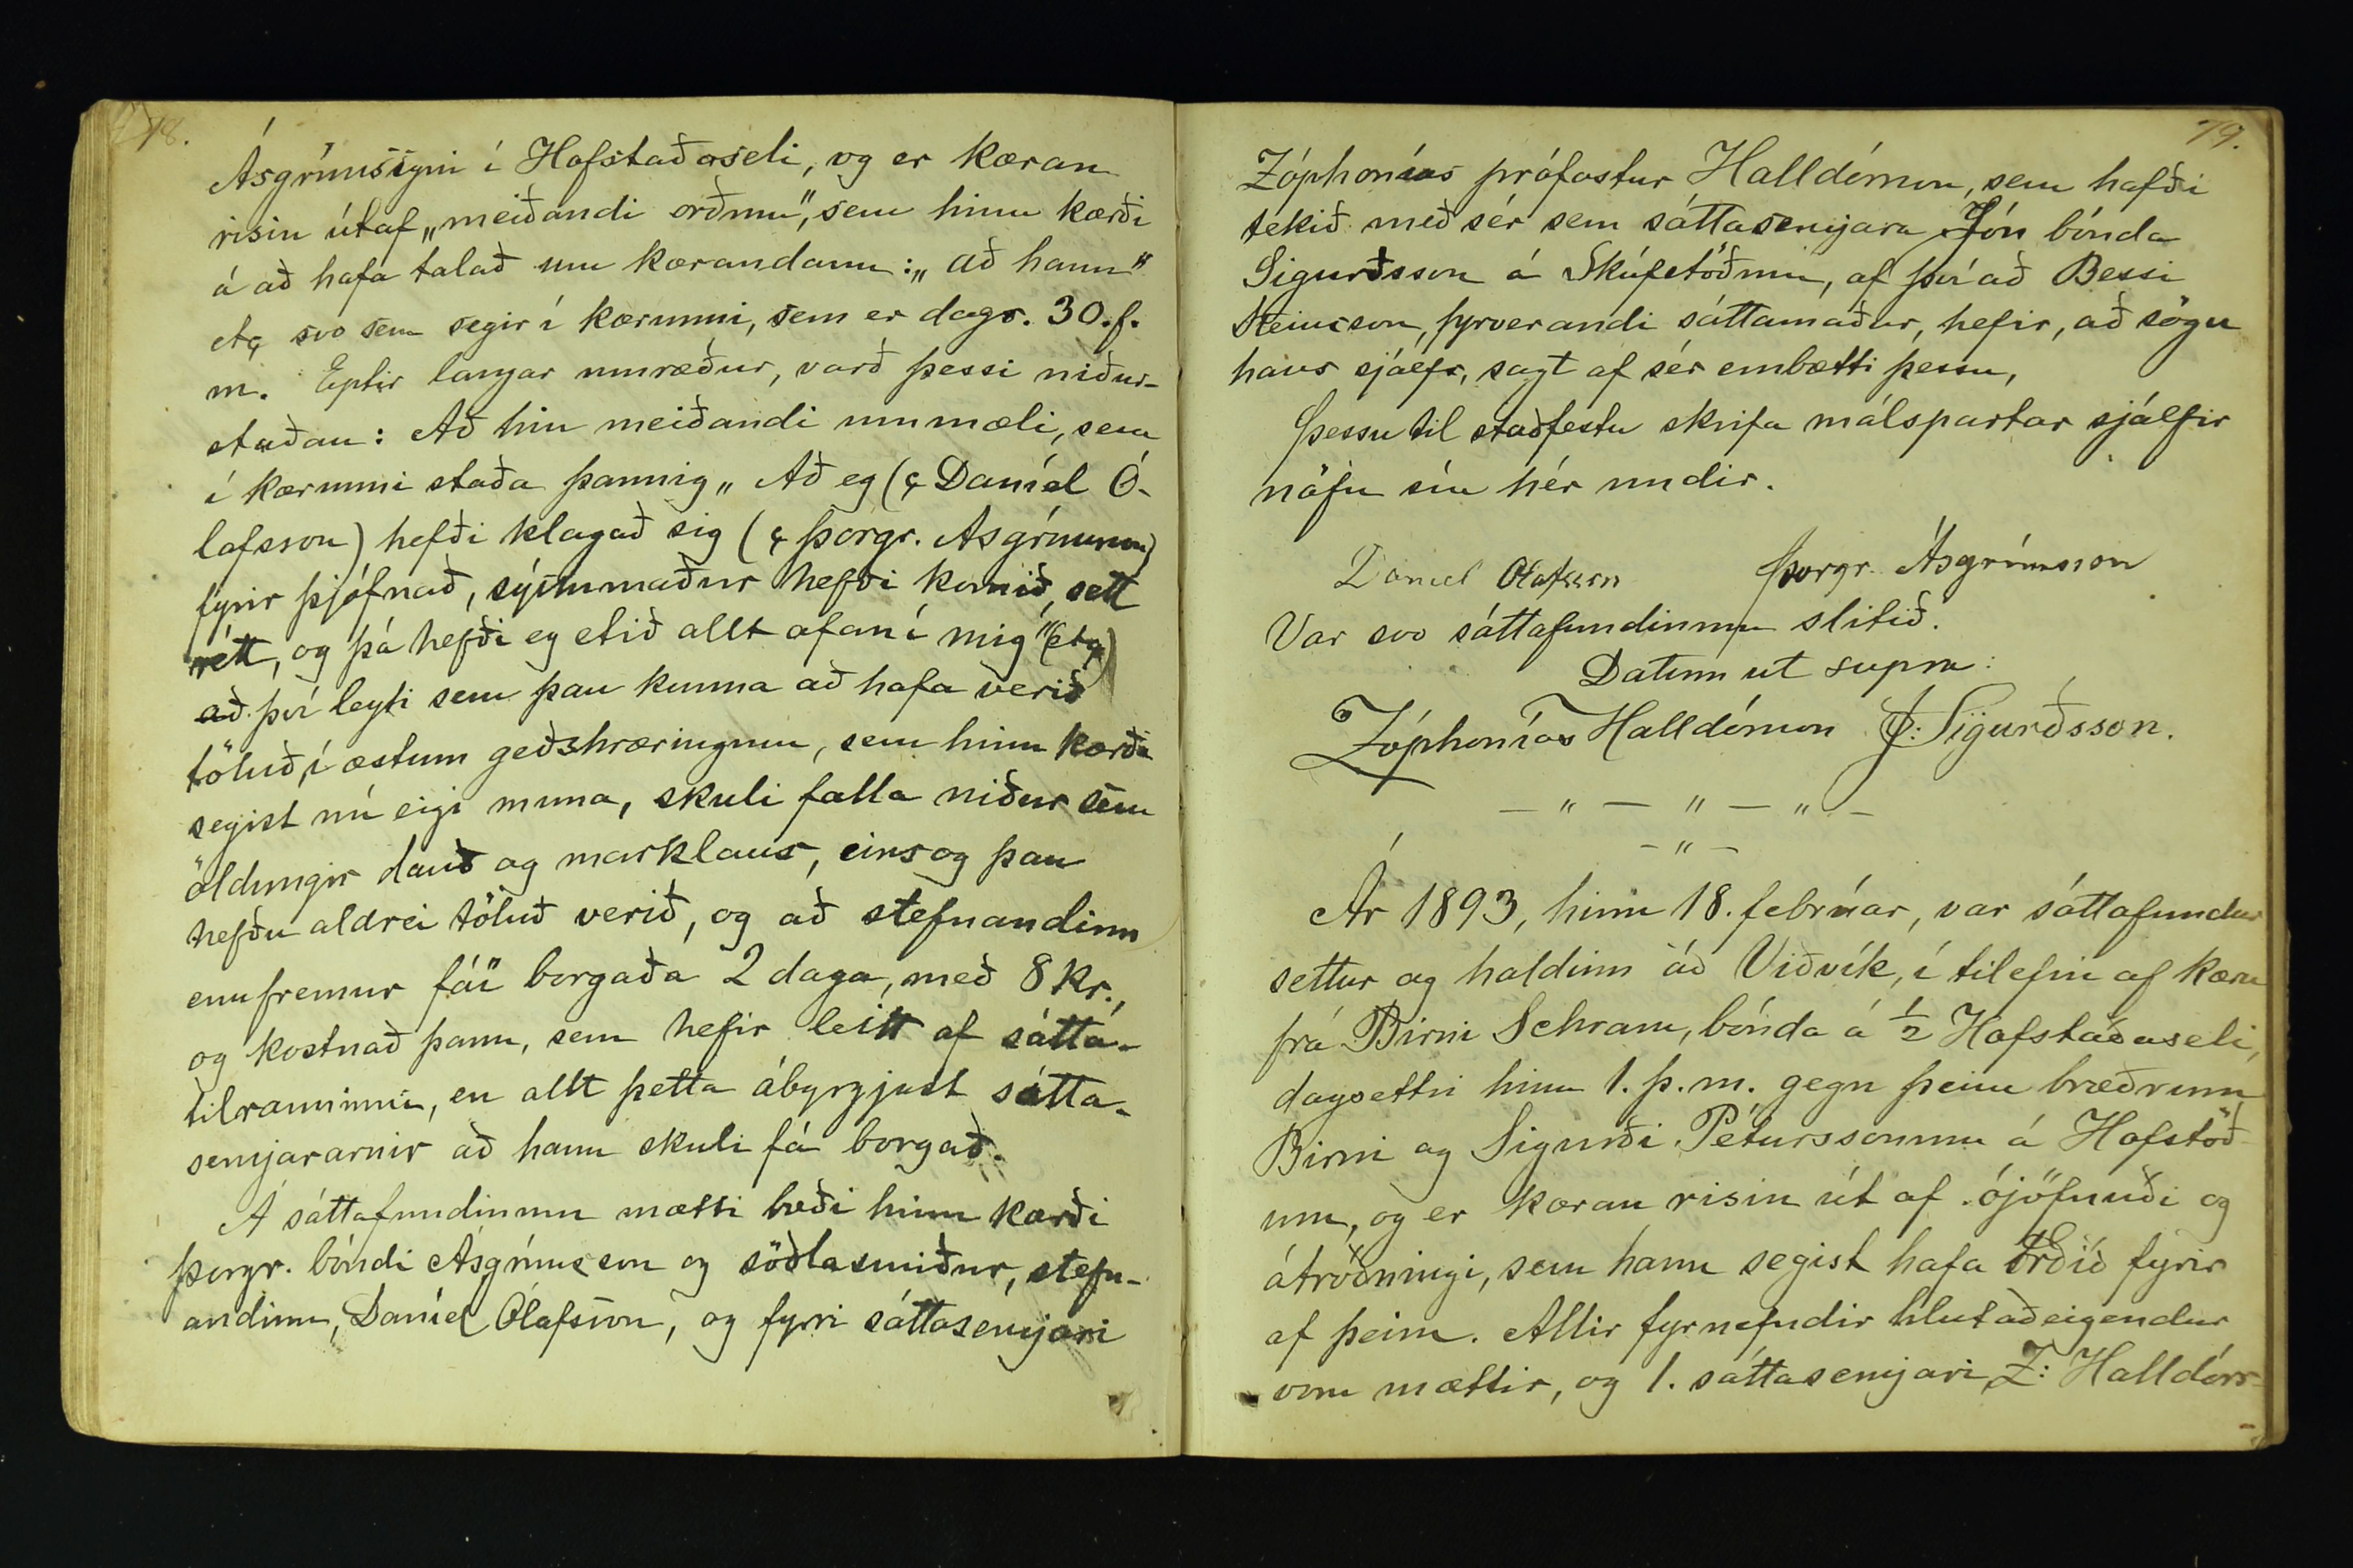 78.
Ásgrímssyni í Hofstaðaseli, og er kæran
risin útaf „meiðandi orðum“, sem hinn kærði
á að hafa talað um kærandann: „að hann“
etc svo sem segir í kærunni, sem er dags. 30. f.
m. Eptir langar umræður, varð þessi niður-
staðan: Að hin meiðandi ummæli, sem
í kærunni staða þannig „Að eg (ɔ: Daníel Ó-
lafsson) hefði klagað sig (ɔ: Þorgr. Ásgrímsson)
fyrir þjófnað, sýslumaður hefði komið, sett
rétt, og þá hefði eg etið allt ofaní mig“ (etc)
að því leyti sem þau kunna að hafa verið
töluð, í æstum geðshræringum, sem hinn kærði
segist nú eigi muna, skuli falla niður sem
öldungis dauð og marklaus, eins og þau
hefðu aldrei töluð verið, og að stefnandinn
ennfremur fái borgaða 2 daga, með 8 kr.,
og kostnað þann, sem hefir leitt af sátta-
tilrauninni, en allt þetta ábyrgjast sátta-
semjararnir að hann skuli fá borgað.
Á sáttafundinum mætti bæði hinn kærði
Þorgr. bóndi Ásgrímsson og söðlasmiður, stefn-
andinn, Daníel Ólafsson, og fyrri sáttasemjari
79.
Zóphonías prófastur Halldórsson, sem hafði
tekið með sér sem sáttasemjara Jón bónda
Sigurðsson á Skúfstöðum, af því að Bessi
Steinsson, fyrverandi sáttamaður, hefir, að sögn
hans sjálfs, sagt af sér embætti þessu,
Þessu til staðfestu skrifa málspartar sjálfir
nöfn sín hér undir.
Daniel Olafsson Þorgr. Ásgrímsson
Var svo sáttafundinum slitið.
Datum ut supra:
Zóphonías Halldórsson J: Sigurðsson.
— „ — „ — „ —
— „ —
Ár 1893, hinn 18. febrúar, var sáttafundur
settur og haldinn að Viðvík, í tilefni af kæru
frá Birni Schram, bónda á ½ Hofstaðaseli,
dagsettri hinn 1. þ. m. gegn þeim bræðrum
Birni og Sigurði Péturssonum á Hofstöð-
um, og er kæran risin út af ójöfnuði og
átroðningi, sem hann segist hafa orðið fyrir
af þeim. Allir fyrnefndir hlutaðeigendur
voru mættir, og 1. sáttasemjari, Z: Halldórs-